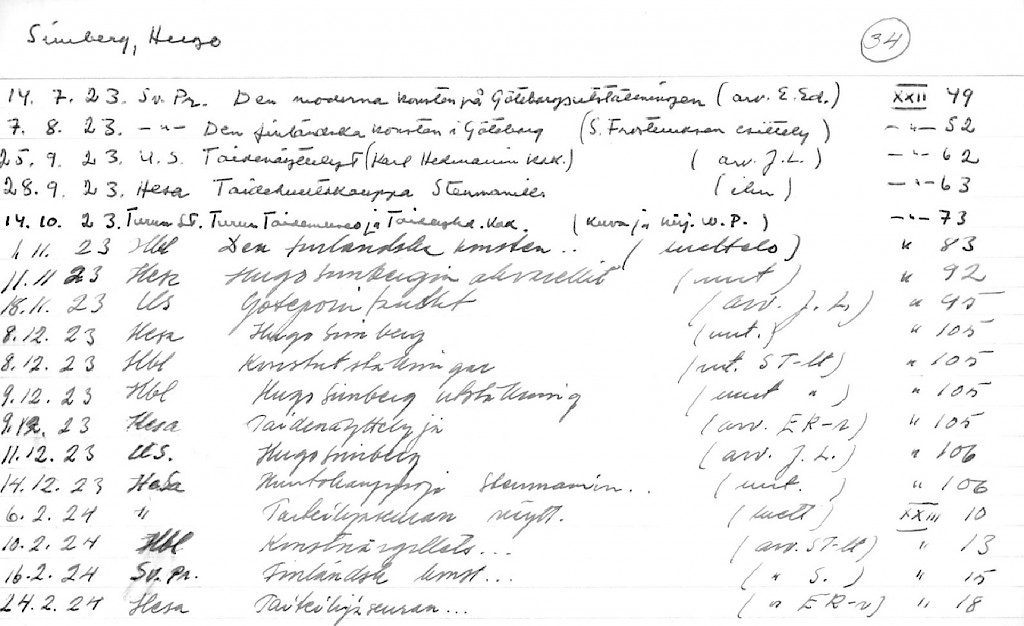 Simberg, Hugo 34
14. 7. 23. Sv. Pr. Den moderna konsten på Göteborgsutställningen (arv. E. Ed.) XXII 49
7. 8. 23. -"- Den finländska konsten i Göteborg (S. Frosterusksen esittely) -"- 52
25. 9. 23. U. S. Taidenäyttelyt (Karl Hedmanin kok.) (arv. J. L.) -"- 62
28. 9. 23. Hesa Taideluetskauppa Stenmanilla (ilm) -"- 63
14. 10. 23. Turun St. Turun Taidemuseo ja Taideyhd. kok. (kuva ja kirj. W. P.) -"- 73
1. 11. 23 Hbl Den finländska konsten .. (luettelo) " 83
11. 11 23 Hesa Hugo Simbergin akvarellit (uut) " 92
18. 11. 23 US Göteporin (arv. J. L.) " 95
8. 12. 23 Hesa Hugo Simberg (uut.) " 105
8. 12. 23 Hbl Konstutställningar (uut. ST-lt) " 105
9. 12. 23 Hbl Hugo Simberg utställning (uut ") " 105
9. 12. 23 Hesa Taidenäyttelyjä (arv. ER-r) " 105
11. 12. 23 U.S. Hugo Simberg (arv. J. L.) " 106
14. 12. 23 HeSa Huutokauppoja Stenmanin .. (uut.) " 106
6. 2. 24 " Taiteilijaseuran näytt. (luett) XXIII 10
10. 2. 24 Hbl Konstnärsgillets ... (arv. ST-lt) " 13
16. 2. 24 Sv. Pr. Finländsk konst ... (" S.) " 15
24. 2. 24 Hesa Taiteilijaseuran ... (" ER-r) " 18